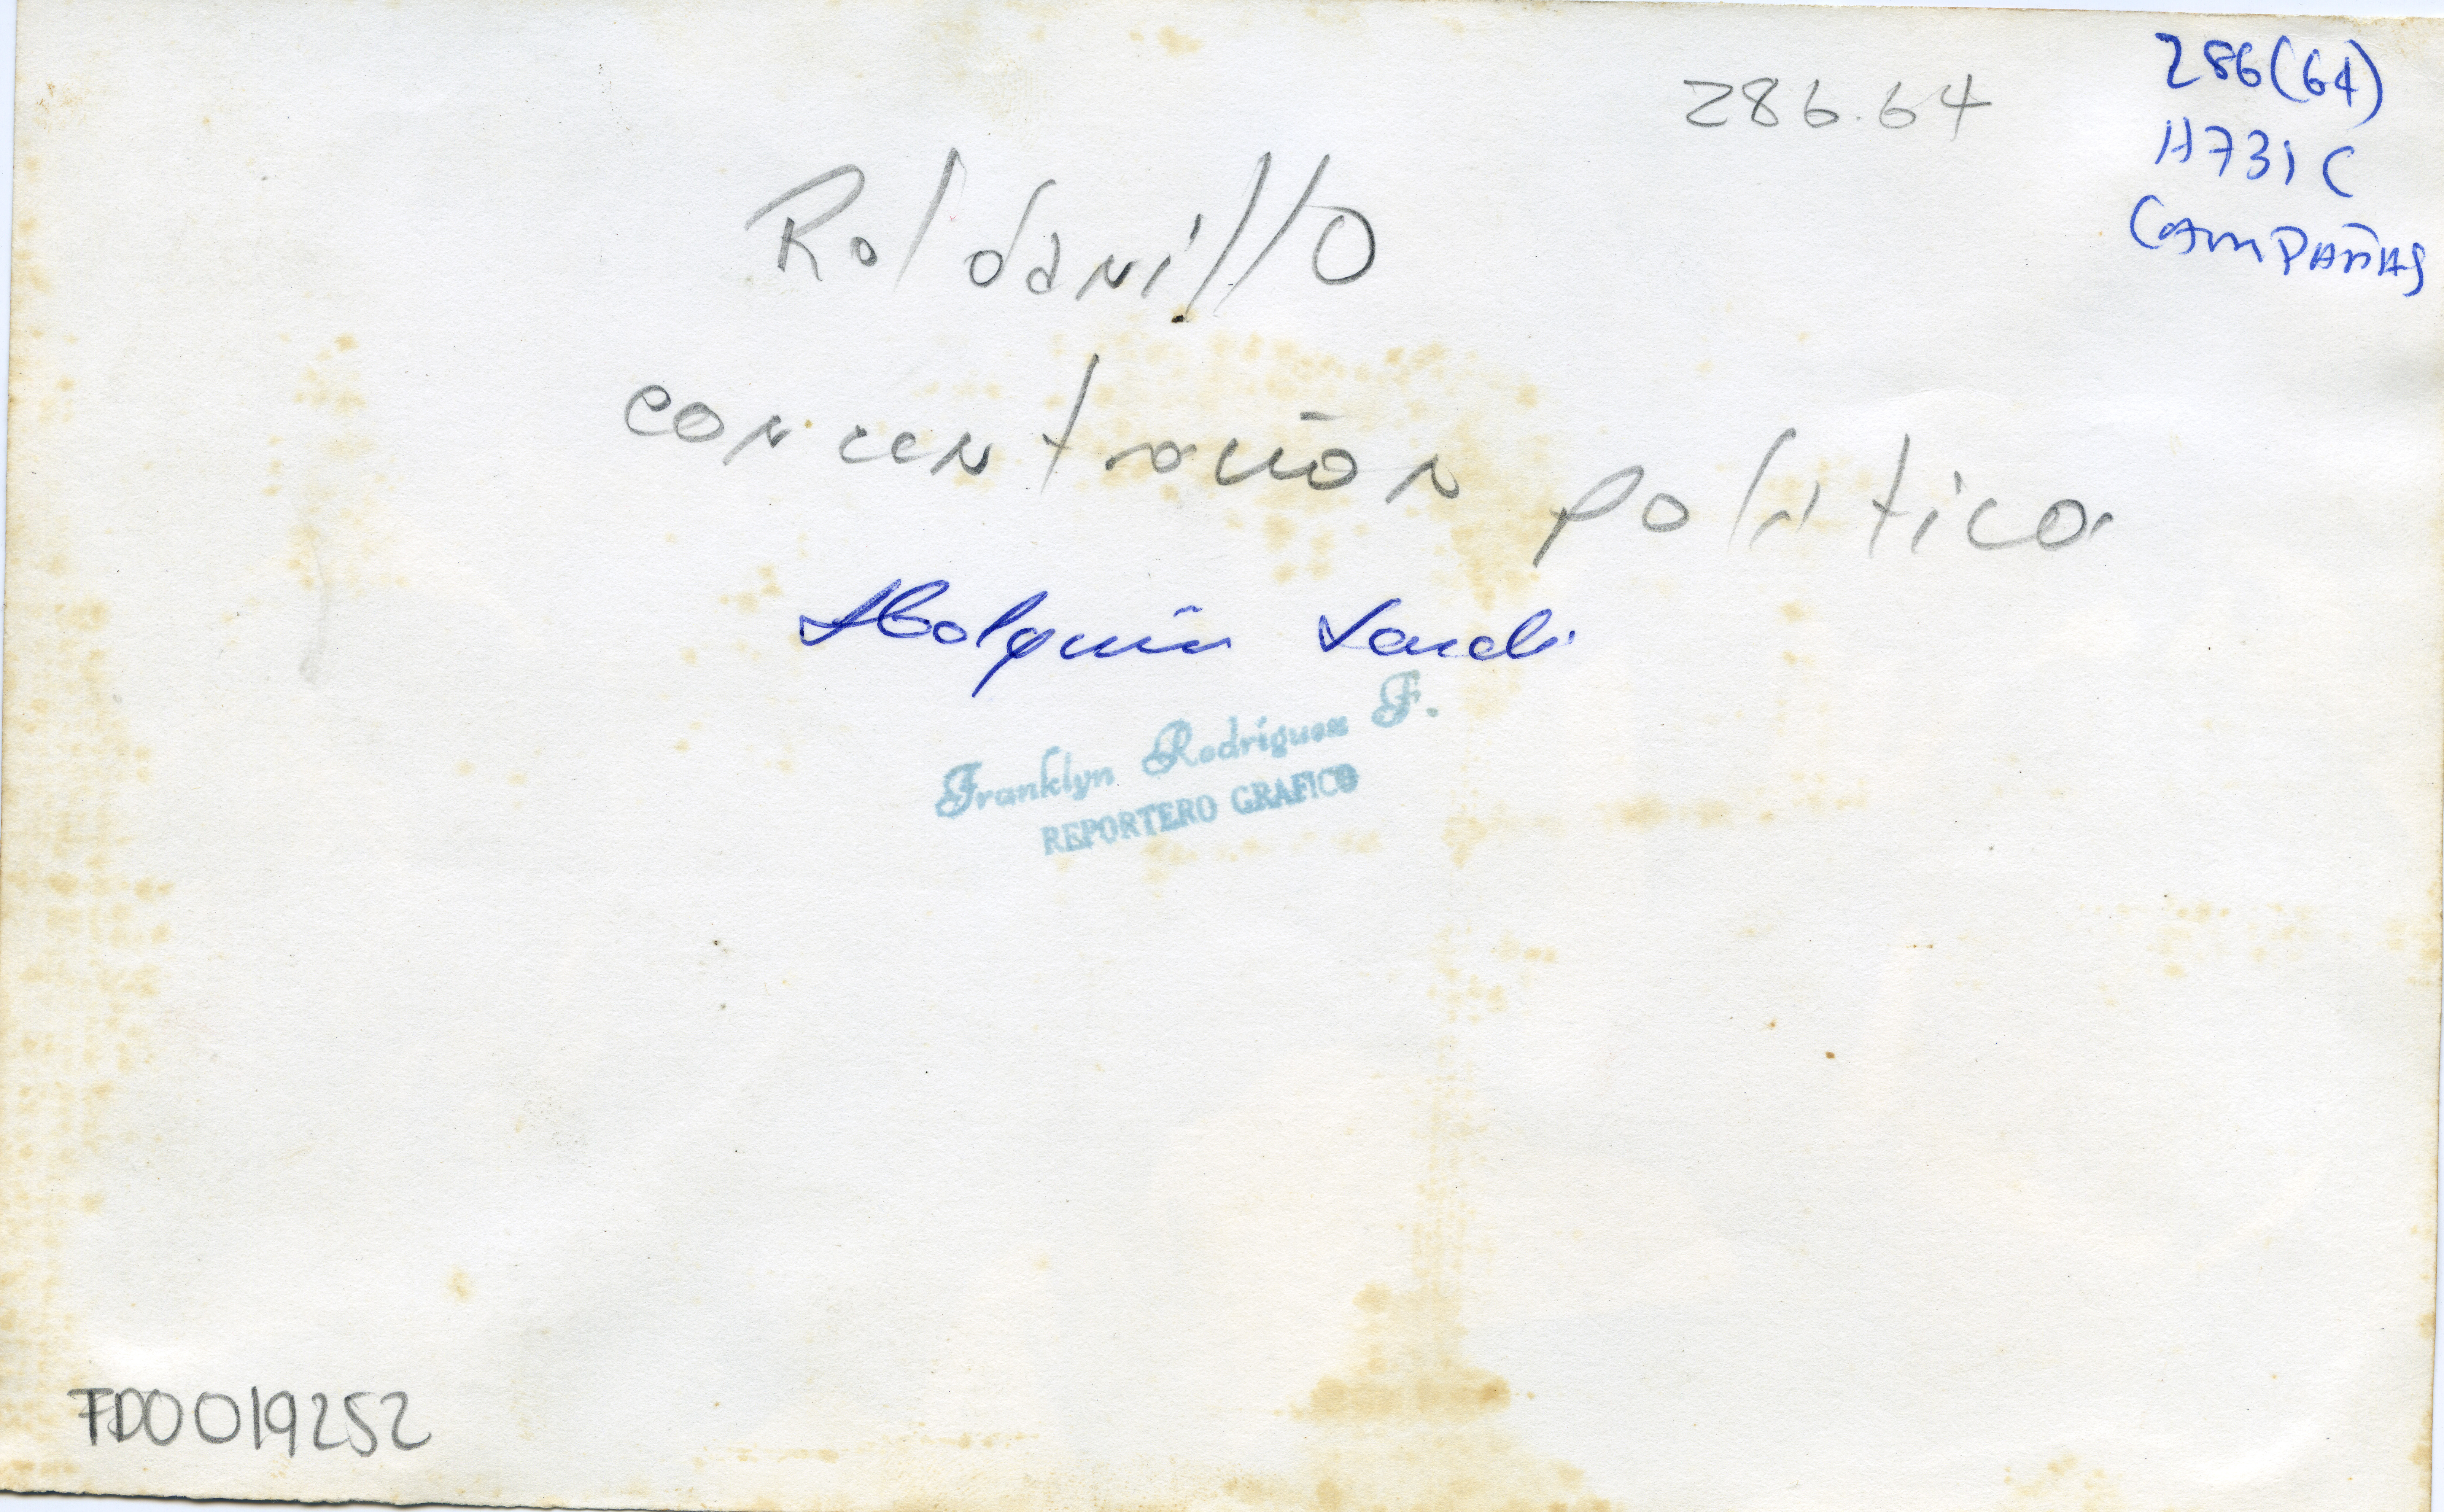 286(64)
H731C
CAMPAÑAS
286.64
Roldanillo
concentración política
Holguín Sardi
Franklyn Rodríguez F.
REPORTERO GRAFICO
FD0019252